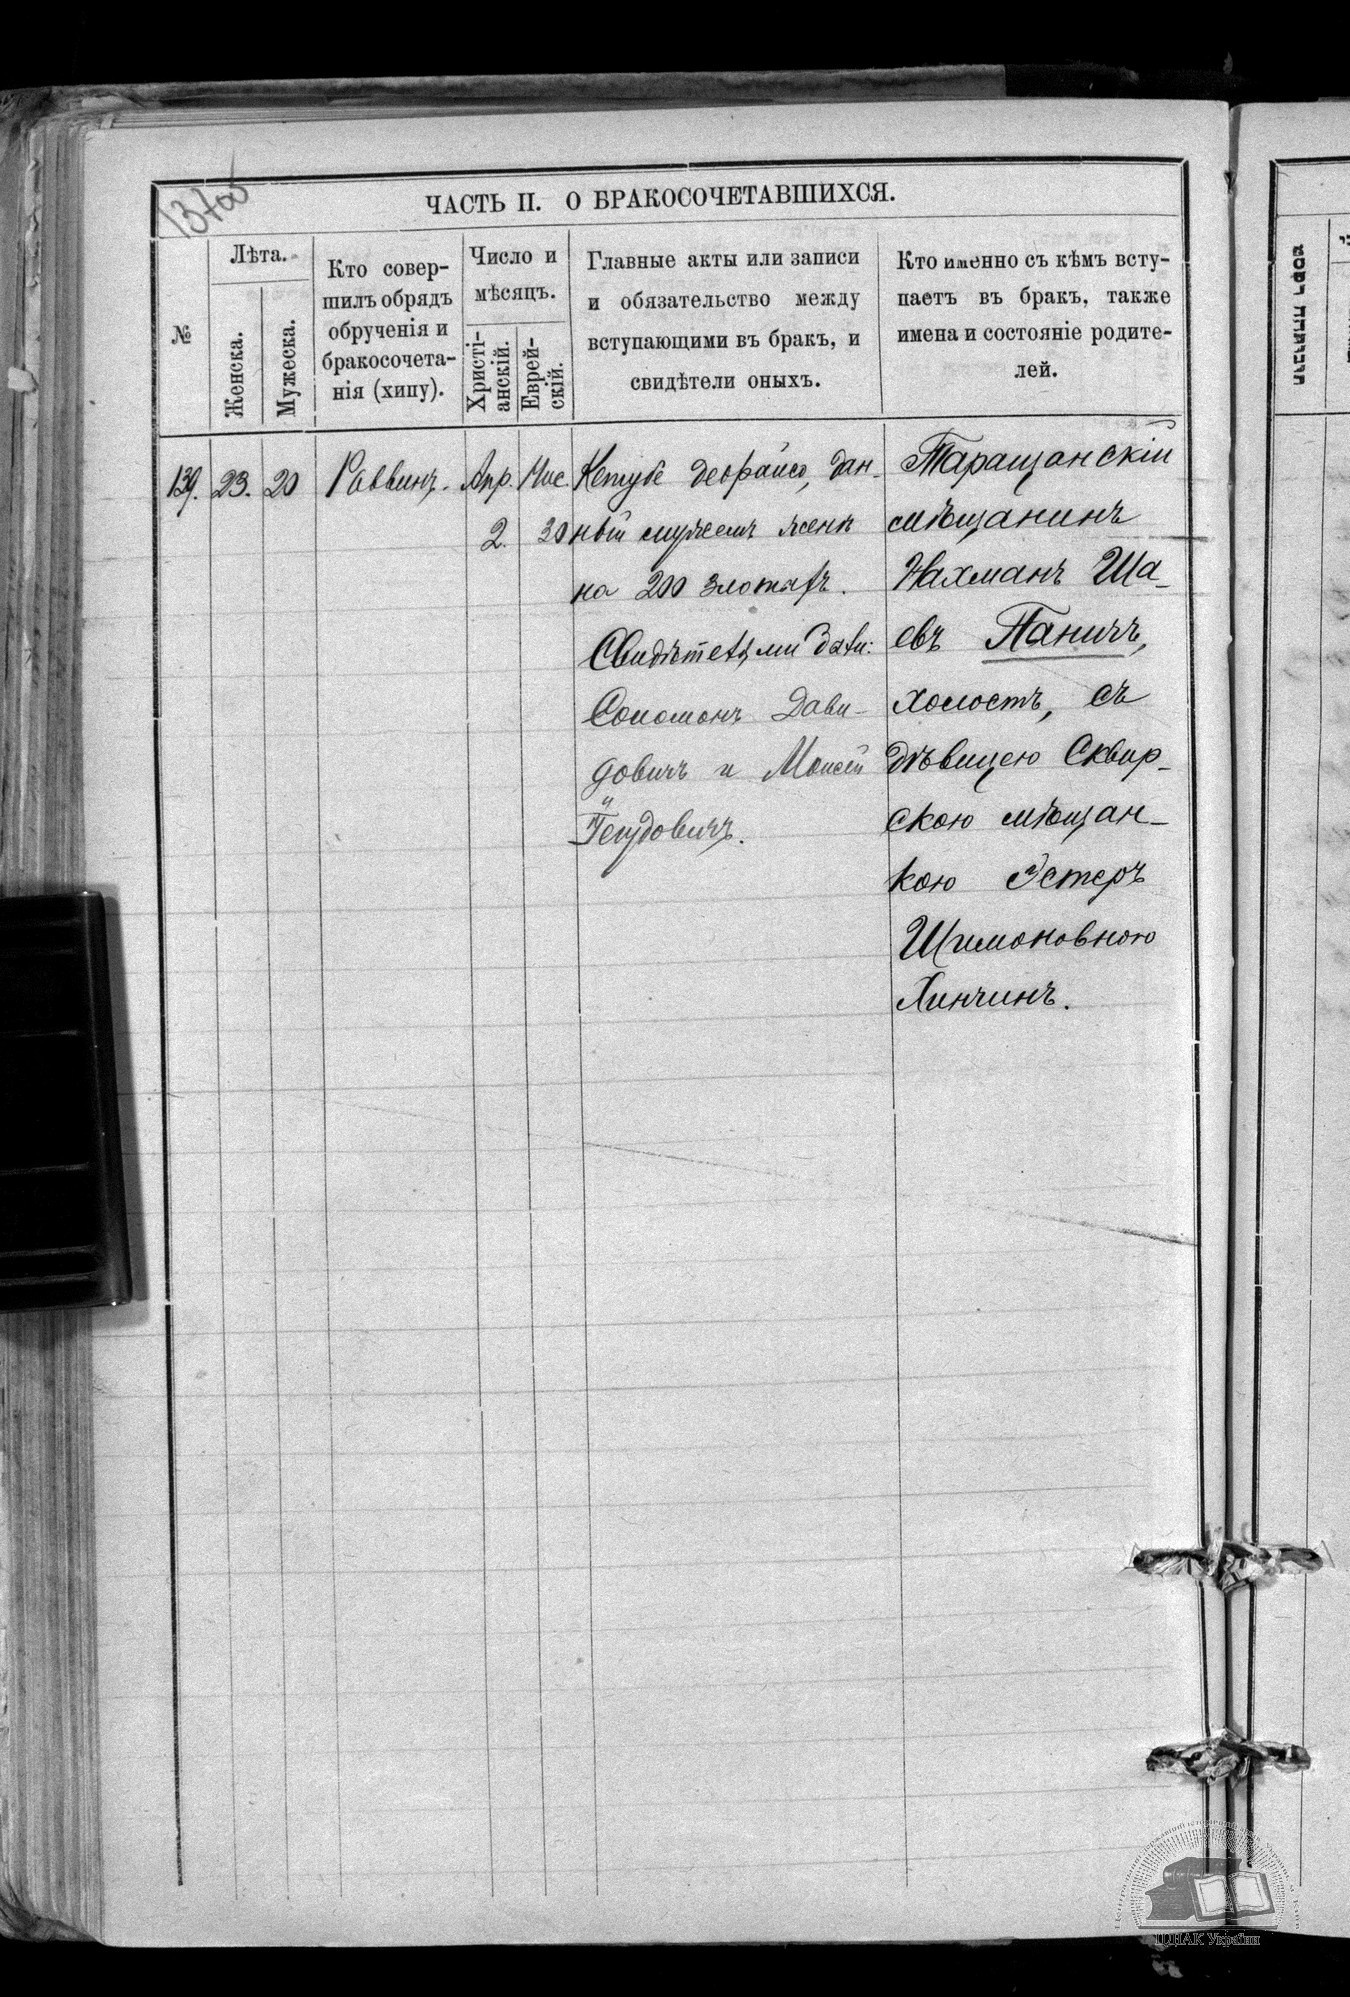 137об
ЧАСТЬ II. О БРАКОСОЧЕТАВШИХСЯ.
№
Лѣта.
Женска.
Мужеска.
Кто совер-
шилъ обрядъ
обрученія и
бракосочета-
нія (хипу).
Число и
мѣсяцъ.
Христі-
анскій.
Еврей-
скій.
Главные акты или записи
и обязательство между
вступающими въ бракъ, и
свидѣтели оныхъ.
Кто именно съ кѣмъ всту-
паетъ въ бракъ, также
имена и состояніе родите-
лей.
139.
23.
20
Раввинъ.
Апр.
2.
Нис.
30
Кетубе деорайсо, дан-
ный мужемъ женѣ
на 200 злотыхъ.
Свидѣтелями были:
Соломонъ Дави-
довичъ и Моисей
Іегудовичъ.
Таращанскій
мѣщанинъ
Нахманъ Ша-
евъ Паничъ,
холостъ, съ
дѣвицею Сквир-
скою мѣщан-
кою Эстеръ
Шимоновною
Хинчинъ.
ЦДІАК України